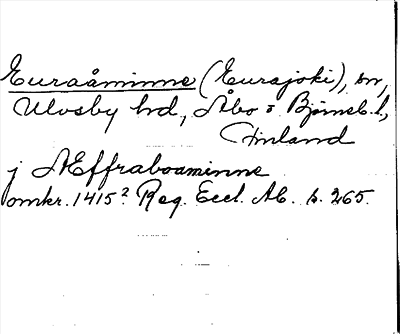 Euraåminne (Eurajoki), sn,
Ulvsby hd, Åbo o Björneb. l.,
Finland
j Æffraboaminne
omkr. 1415? Reg. Eccl. Ab. s. 265.